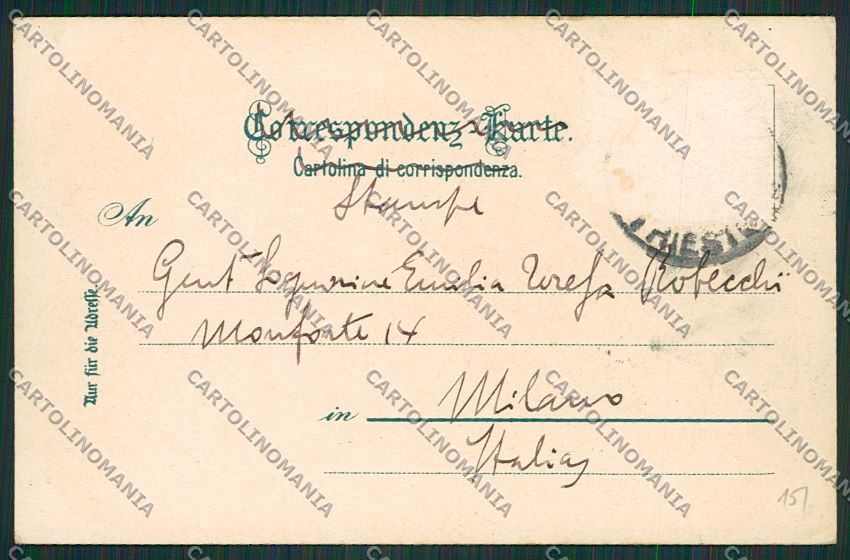 Correspondenz-Karte.
Cartolina di corrispondenza.
Stampe
An
TRIESTE
Gent Signorine Emilia Teresa Robecchi
Monforte 14
Nur für die Adresse.
in Milano
Italia
15/
CARTOLINOMANIA